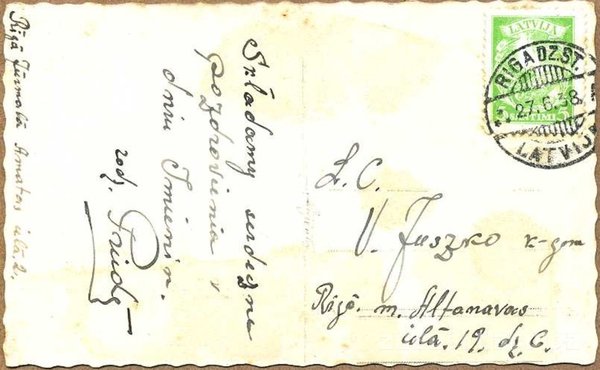 Rīgā Jūrmalā Amatas ielā 2.
Składamy serdeczne
pozdrowienia w
dniu Imienin.
rodz.
LATVIJA
5 SANTIMI 5
RIGA DZ.ST.
27.6.38.
LATVIJA
L. C.
V. Juszko k-gam
Rīgā. m. Altonavas
ielā. 19. dz. 6.